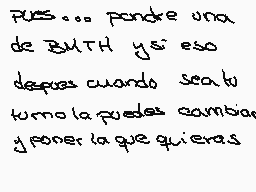 pues... pondre una
de BMTH y si eso
despues cuando sea tu
turno la puedes cambiar
y poner la que quieras